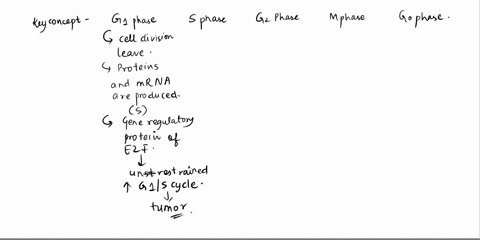 Key concept - G1 phase S phase G2 Phase M phase G0 phase.
↳ cell division
leave.
↳ Proteins
and mRNA
are produced.
(S)
↳ Gene regulatory
protein of
E2F.
↓
unrestrained
↑ G1/S cycle.
↓
tumor.